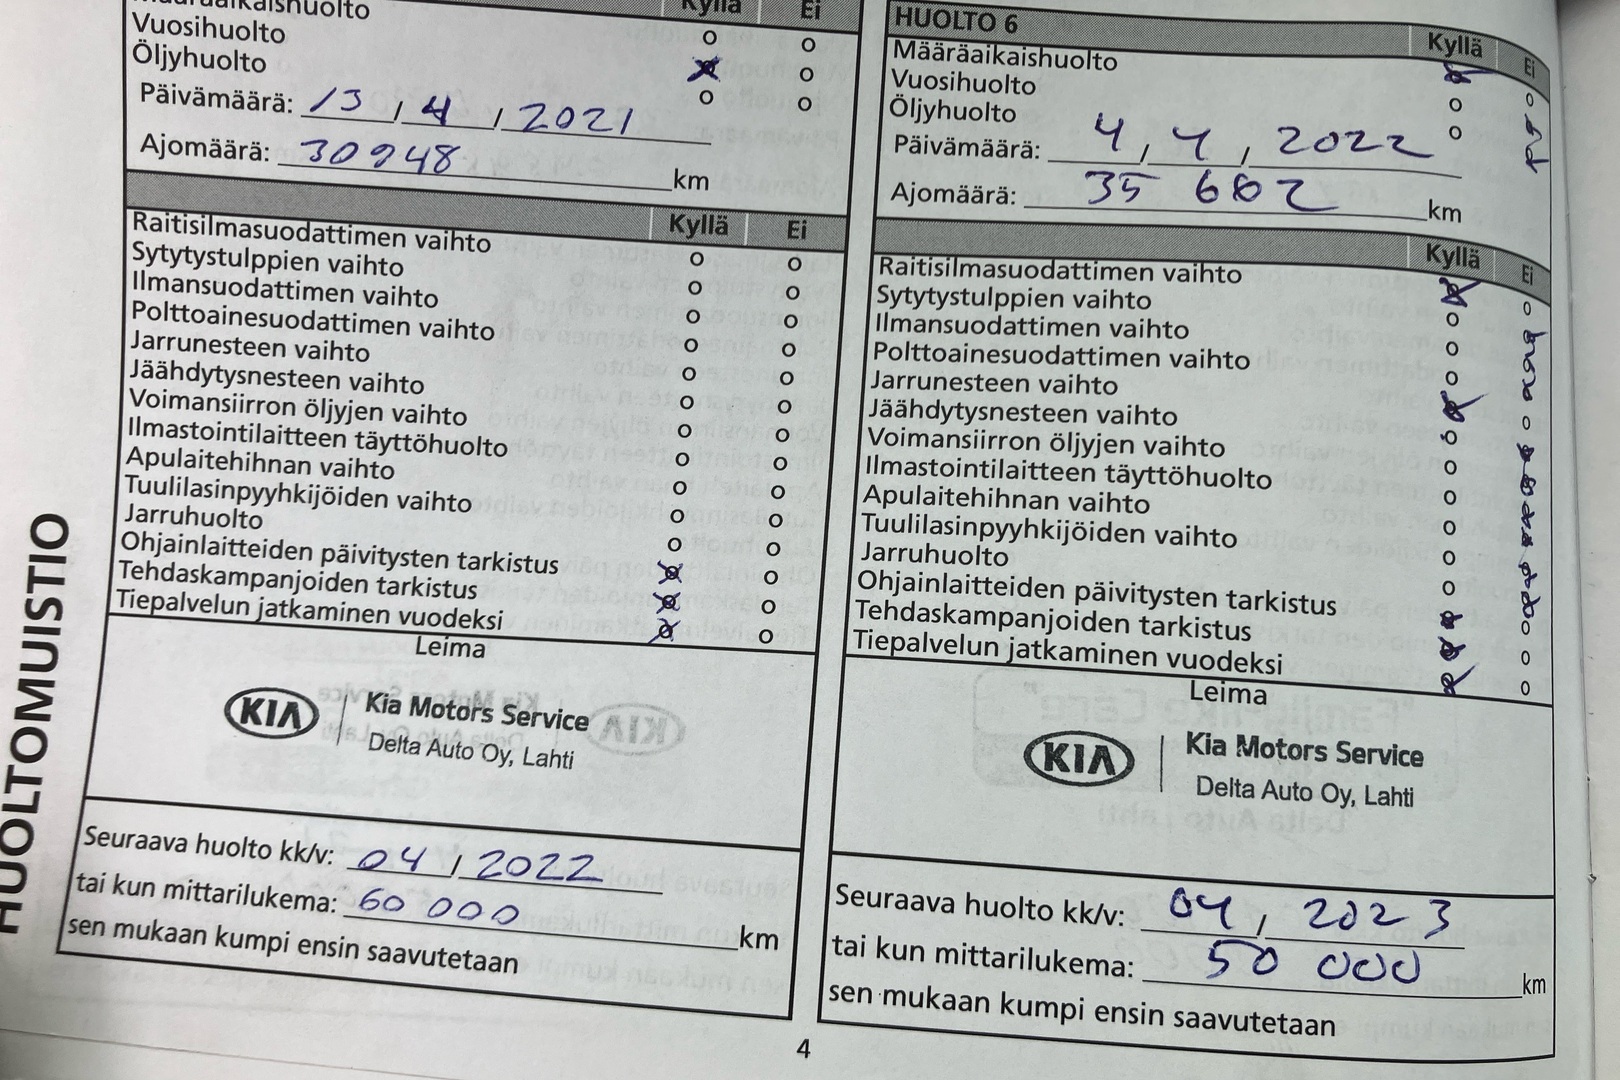 Kyllä Ei
Vuosihuolto
Öljyhuolto
Päivämäärä: 13 / 4 / 2021
Ajomäärä: 30948 km
Kyllä Ei
Raitisilmasuodattimen vaihto
Sytytystulppien vaihto
Ilmansuodattimen vaihto
Polttoainesuodattimen vaihto
Jarrunesteen vaihto
Jäähdytysnesteen vaihto
Voimansiirron öljyjen vaihto
Ilmastointilaitteen täyttöhuolto
Apulaitehihnan vaihto
Tuulilasinpyyhkijöiden vaihto
Jarruhuolto
Ohjainlaitteiden päivitysten tarkistus
Tehdaskampanjoiden tarkistus
Tiepalvelun jatkaminen vuodeksi
Leima
KIA Kia Motors Service
Delta Auto Oy, Lahti
Seuraava huolto kk/v: 04 / 2022
tai kun mittarilukema: 60 000 km
sen mukaan kumpi ensin saavutetaan
HUOLTO 6 Kyllä Ei
Määräaikaishuolto
Vuosihuolto
Öljyhuolto
Päivämäärä: 4 / 4 / 2022
Ajomäärä: 35 662 km
Kyllä Ei
Raitisilmasuodattimen vaihto
Sytytystulppien vaihto
Ilmansuodattimen vaihto
Polttoainesuodattimen vaihto
Jarrunesteen vaihto
Jäähdytysnesteen vaihto
Voimansiirron öljyjen vaihto
Ilmastointilaitteen täyttöhuolto
Apulaitehihnan vaihto
Tuulilasinpyyhkijöiden vaihto
Jarruhuolto
Ohjainlaitteiden päivitysten tarkistus
Tehdaskampanjoiden tarkistus
Tiepalvelun jatkaminen vuodeksi
Leima
KIA Kia Motors Service
Delta Auto Oy, Lahti
Seuraava huolto kk/v: 04 / 2023
tai kun mittarilukema: 50 000 km
sen mukaan kumpi ensin saavutetaan
HUOLTOMUISTIO
4